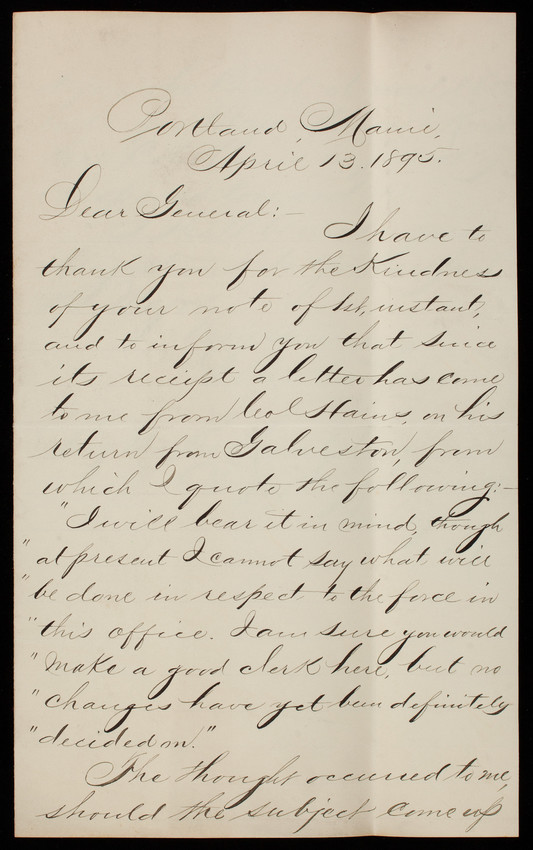 Portland, Maine,
April 13. 1895.
Dear General:-
I have to
thank you for the Kindness
of your note of 1st, instant,
and to inform you that since
its receipt a letter has come
to me from Col Hains, on his
return from Galveston, from
which I quote the following:-
"I will bear it in mind, though
"at present I cannot say what will
"be done in respect to the force in
"this office. I am sure you would
"make a good clerk here, but no
"changes have yet been definitely
"decided on."
The thought occurred to me,
should the subject come up